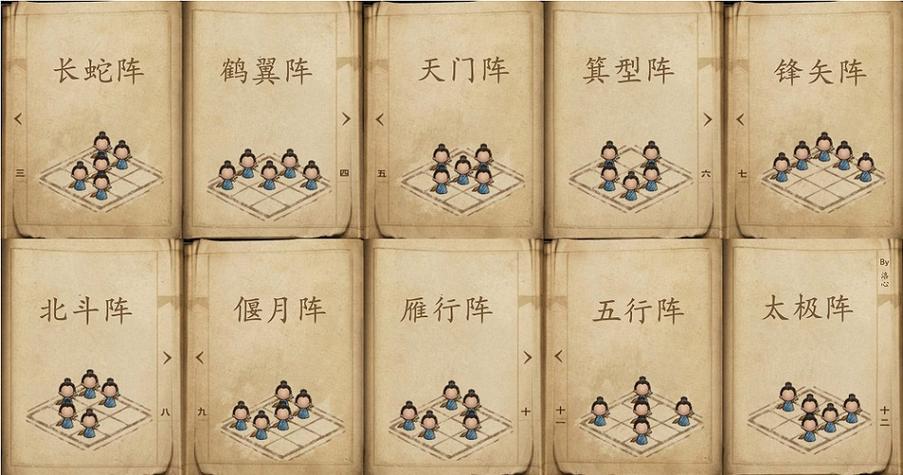 长蛇阵
三
鹤翼阵
四
天门阵
五
箕型阵
六
锋矢阵
七
北斗阵
八
偃月阵
九
雁行阵
十
五行阵
十一
太极阵
十二
By
洛心